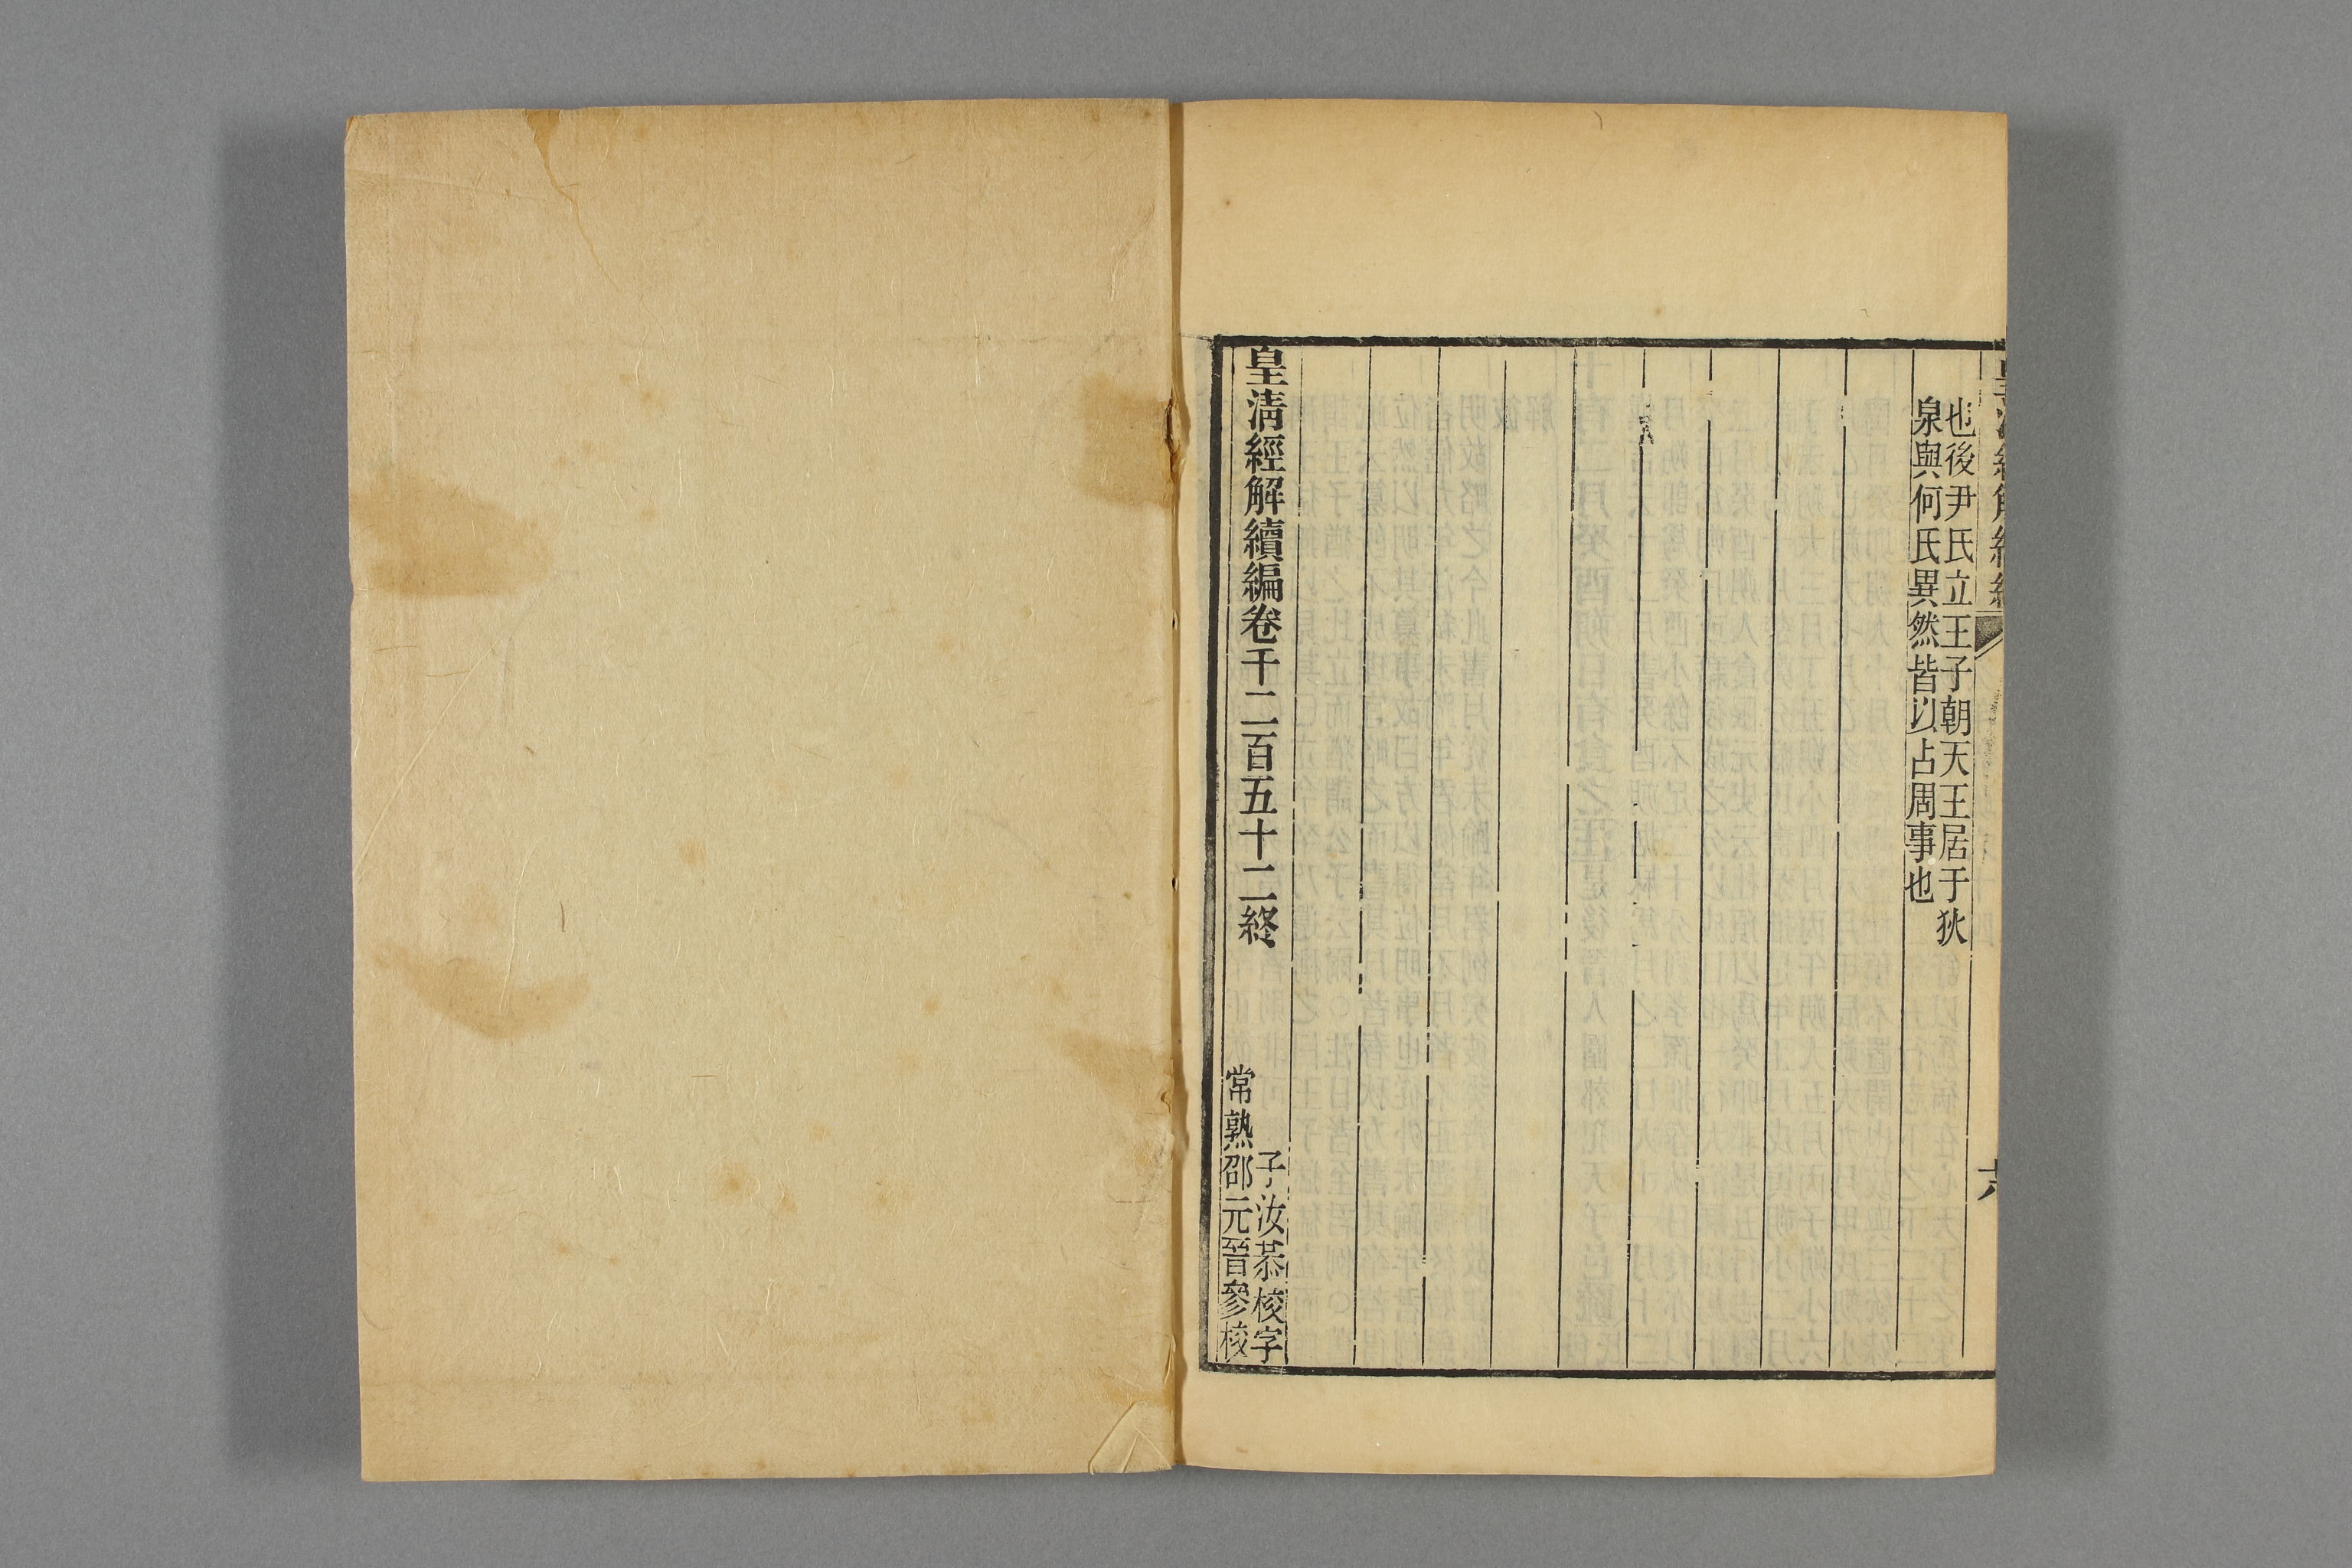 也後尹氏立王子朝天王居于狄
泉與何氏異然皆以占周事也
皇淸經解續編卷千二百五十二終
子汝恭校字
常熟邵元晉參校